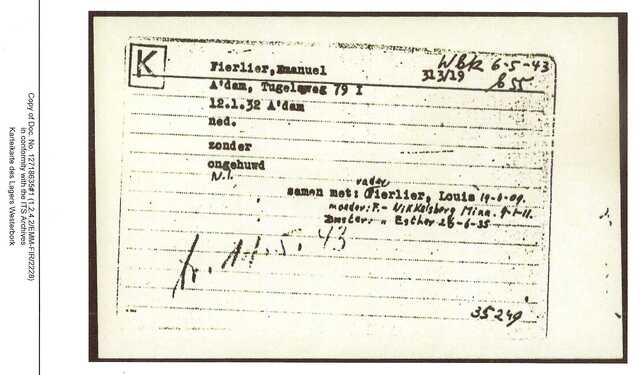 Copy of Doc. No. 12718635#1 (1.2.4.2/EMM-FIR/02228)
in conformity with the ITS Archives
Karteikarte des Lagers Westerbork
K
Fierlier, Emanuel
WBK 6-5-43
313/19
A'dam, Tugelaweg 79 I
B 55
12.1.32 A'dam
ned.
zonder
ongehuwd
N.I.
vader
samen met: Fierlier, Louis
moeder: F.- Nikkelsberg Minn. 9-1-11.
zuster: " Esther 26-6-35
tr. 11.5.43
35249